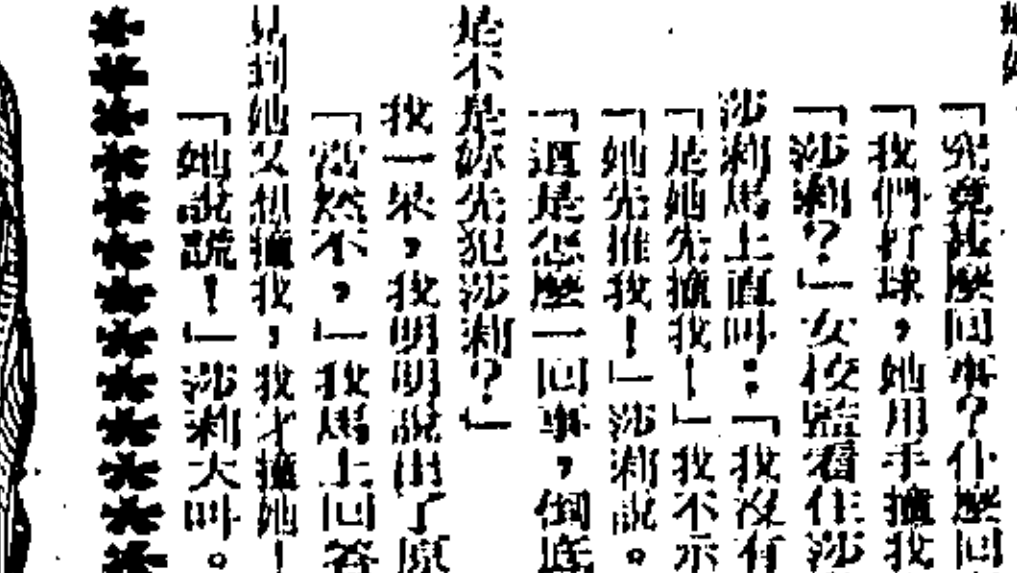 「究竟甚麼回事？什麼回
「我們打球，她用手撞我
「莎莉？」女校監看住莎
莎莉馬上直叫：「我沒有
「是她先撞我！」我不示
「她先推我！」莎莉說。
「這是怎麼一回事，倒底
是不是你先犯莎莉？」
我一呆，我明明說出了原
「當然不，」我馬上回答
見到她又想撞我，我才撞她！
「她說謊！」莎莉大叫。